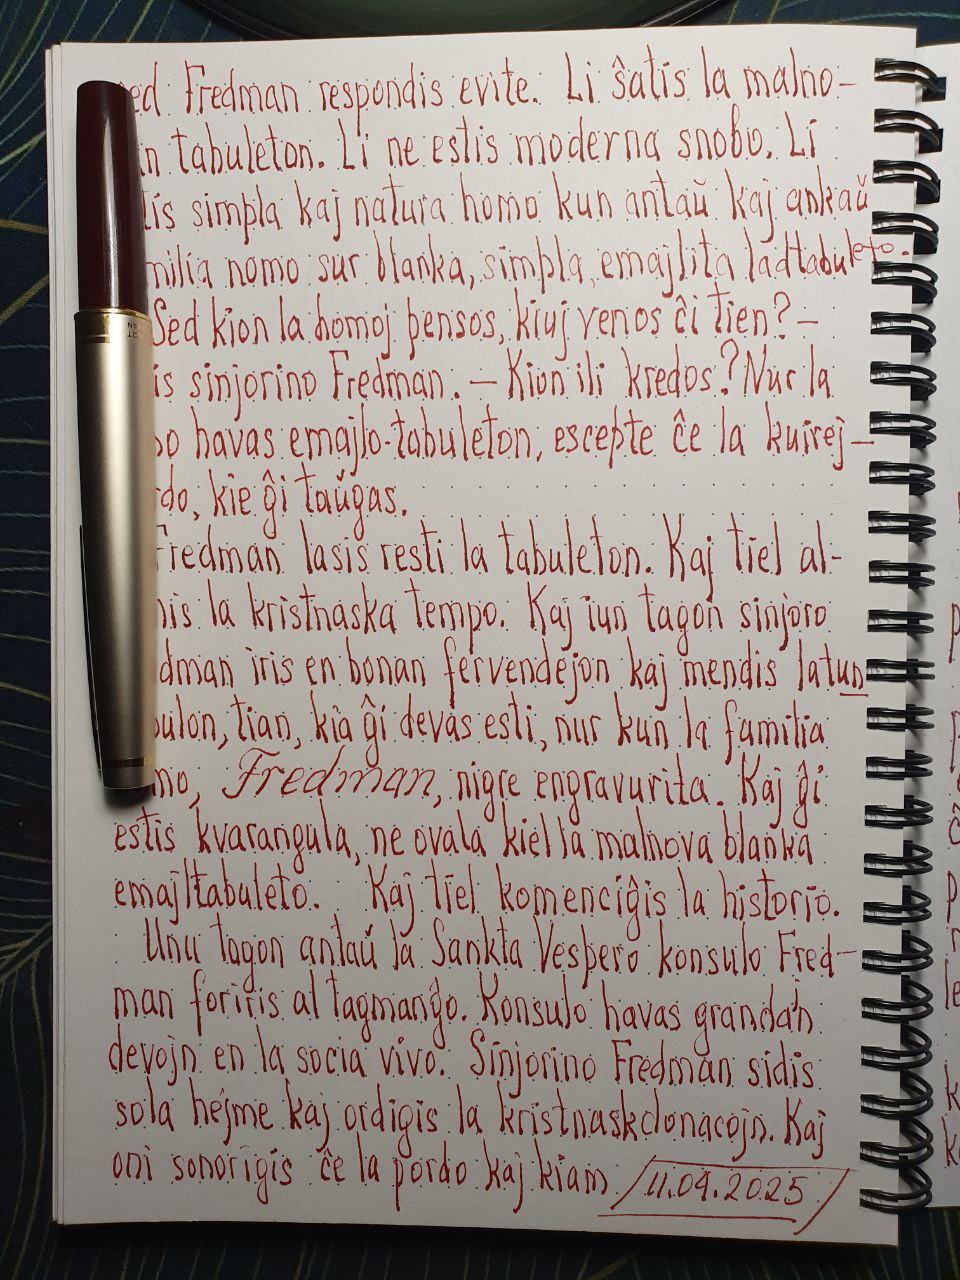 Fredman respondis evite. Li ŝatis la malno-
tabuleton. Li ne estis moderna snobo. Li
simpla kaj natura homo kun antaŭ kaj ankaŭ
nomo sur blanka, simpla, emajlita ladtabuleto.
Sed kion la homoj pensos, kiuj venos ĉi tien? –
sinjorino Fredman. – Kion ili kredos? Nur la
havas emajlo-tabuleton, escepte ĉe la kuirej-
kie ĝi taŭgas.
Fredman lasis resti la tabuleton. Kaj tiel al-
la kristnaska tempo. Kaj iun tagon sinjoro
iris en bonan fervendejon kaj mendis latun
tian, kia ĝi devas esti, nur kun la familia
Fredman, nigre engravurita. Kaj ĝi
estis kvarangula, ne ovala kiel la malnova blanka
emajltabuleto. Kaj tiel komenciĝis la historio.
Unu tagon antaŭ la Sankta Vespero konsulo Fred-
man foriris al tagmanĝo. Konsulo havas grandajn
devojn en la socia vivo. Sinjorino Fredman sidis
sola hejme kaj ordigis la kristnaskdonacojn. Kaj
oni sonorigis ĉe la pordo kaj kiam 11.09.2025